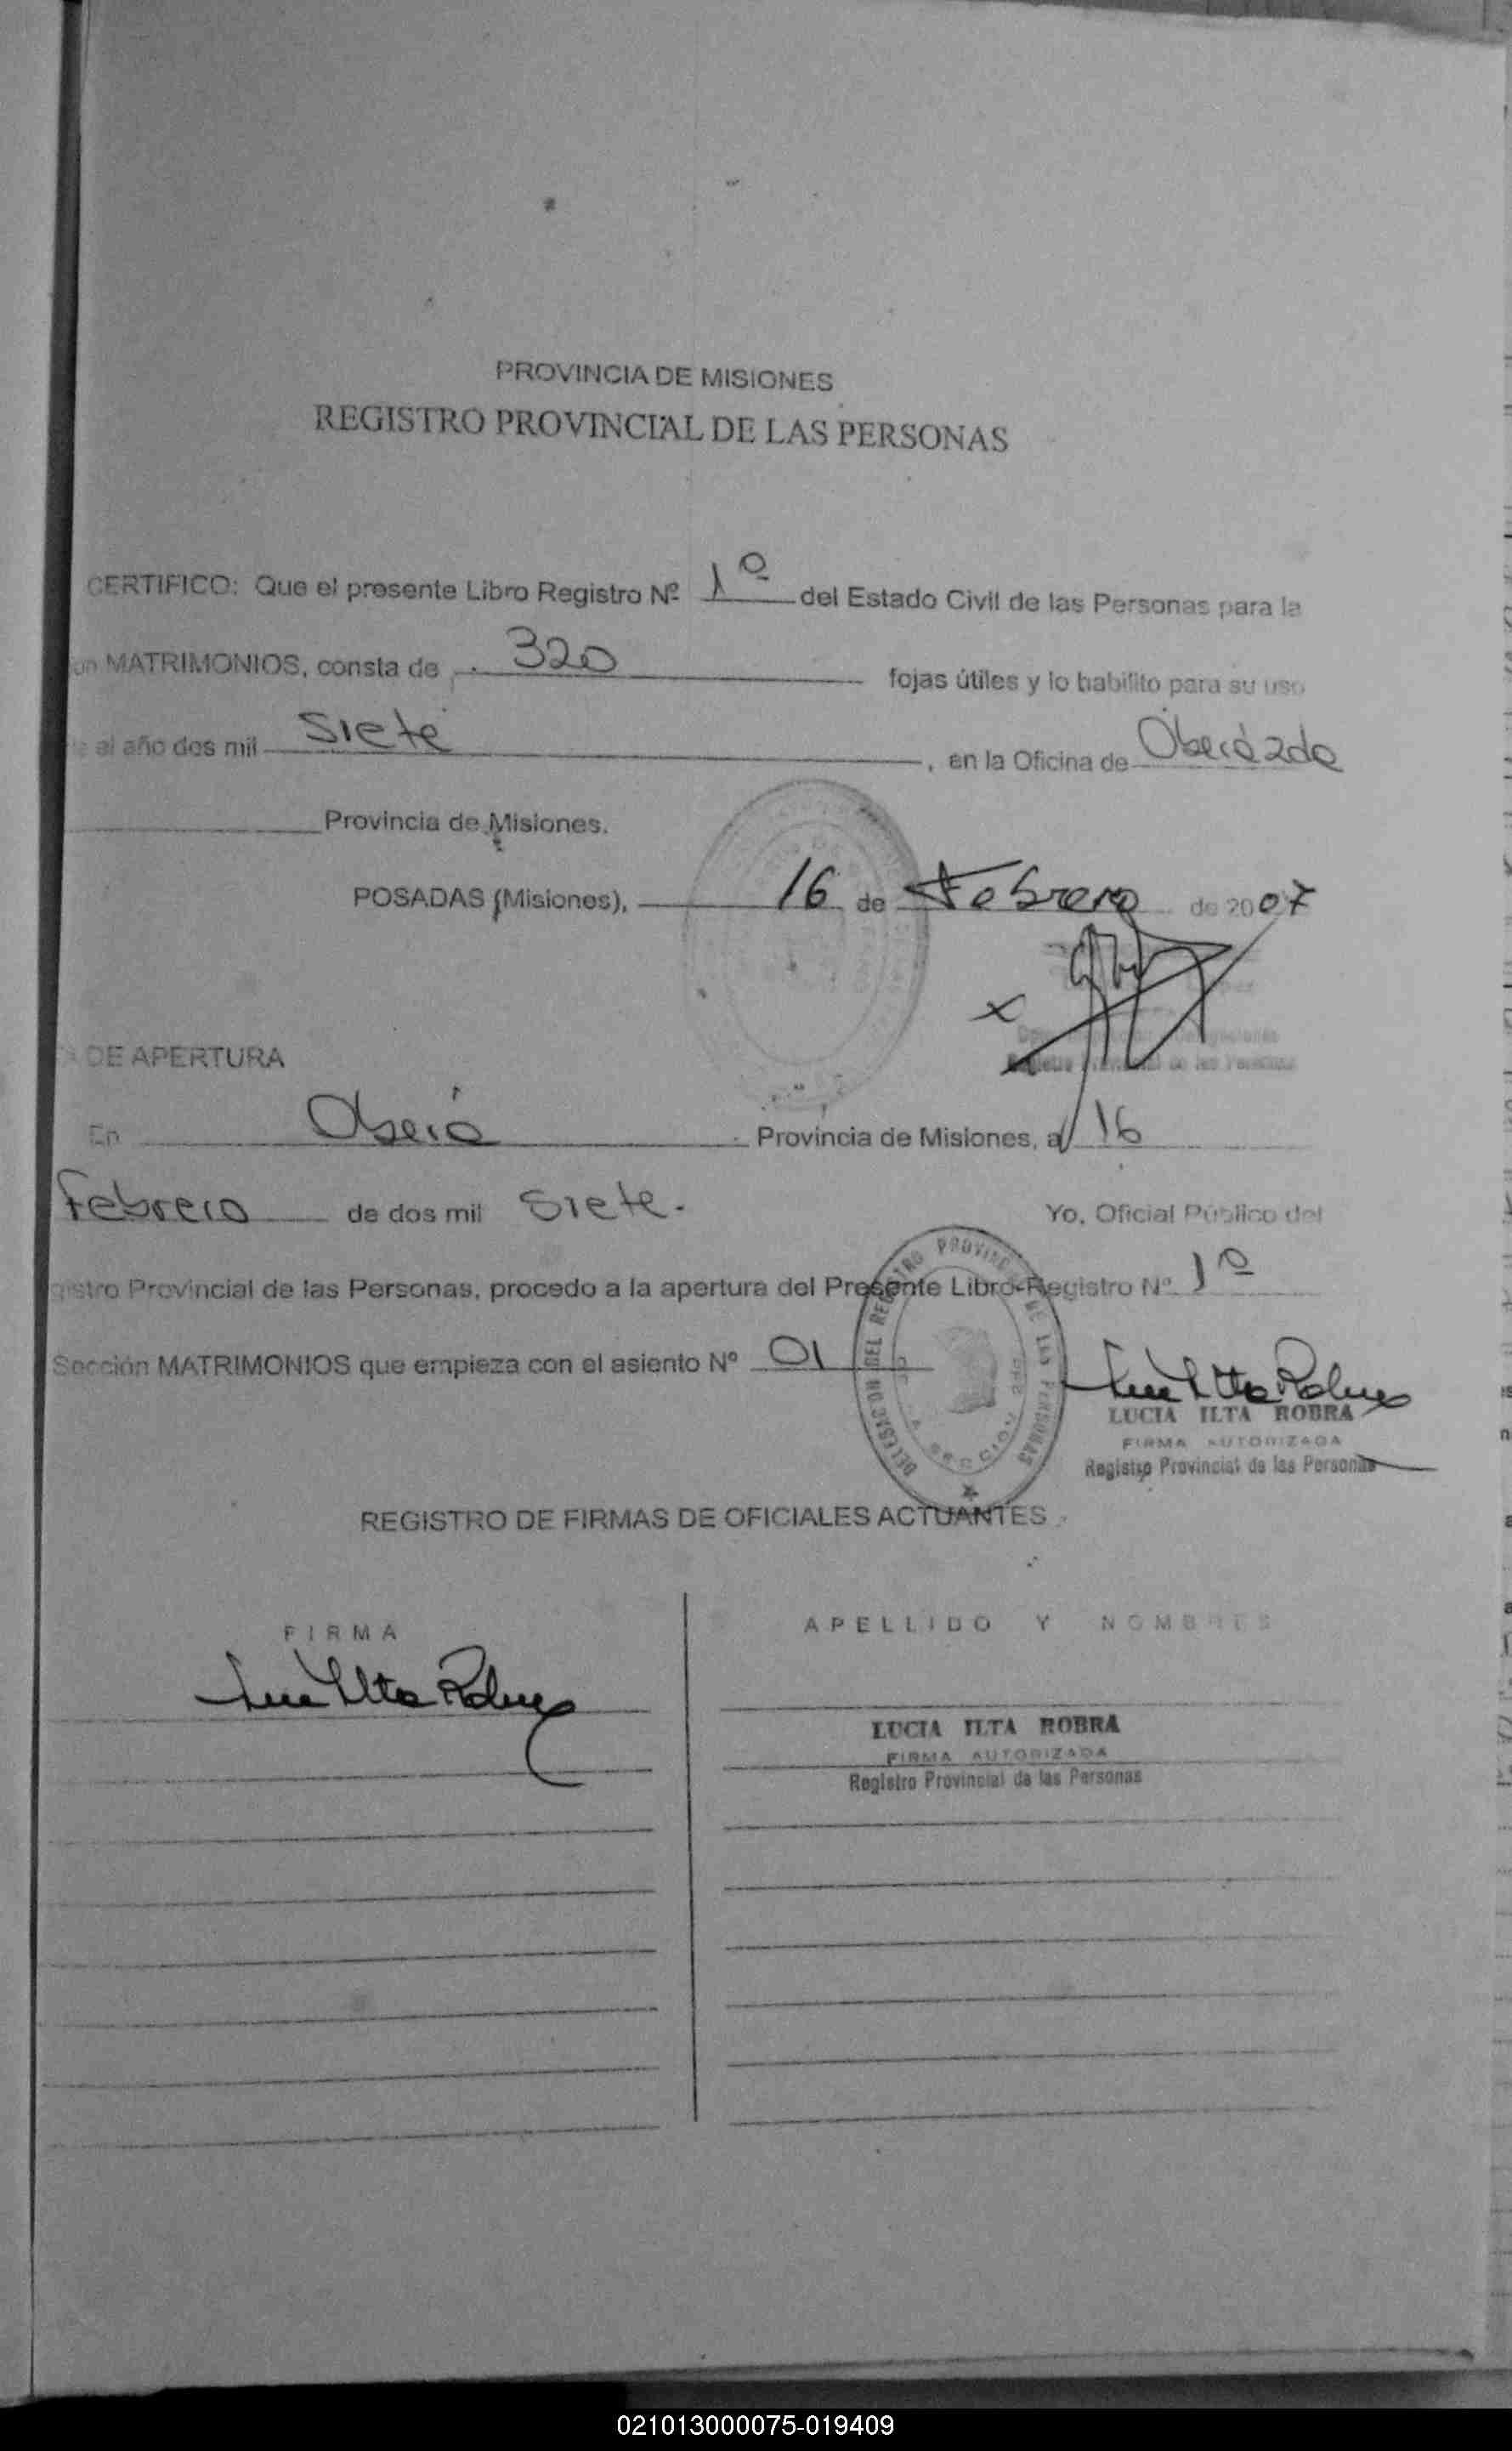 PROVINCIA DE MISIONES
REGISTRO PROVINCIAL DE LAS PERSONAS
CERTIFICO: Que el presente Libro Registro Nº 1º del Estado Civil de las Personas para la
MATRIMONIOS, consta de 320 fojas útiles y lo habilito para su uso
al año dos mil Siete, en la Oficina de Oberá 2da
Provincia de Misiones.
POSADAS (Misiones), 16 de Febrero de 2007
DE APERTURA
En Oberá Provincia de Misiones, a 16
Febrero de dos mil Siete. Yo, Oficial Público del
istro Provincial de las Personas, procedo a la apertura del Presente Libro-Registro Nº 1º
Sección MATRIMONIOS que empieza con el asiento Nº 01
DELEGACION DEL REGISTRO PROVINCIAL DE LAS PERSONAS
LUCIA ILTA ROBRA
FIRMA AUTORIZADA
Registro Provincial de las Personas
REGISTRO DE FIRMAS DE OFICIALES ACTUANTES
FIRMA APELLIDO Y NOMBRES
LUCIA ILTA ROBRA
FIRMA AUTORIZADA
Registro Provincial de las Personas
021013000075-019409